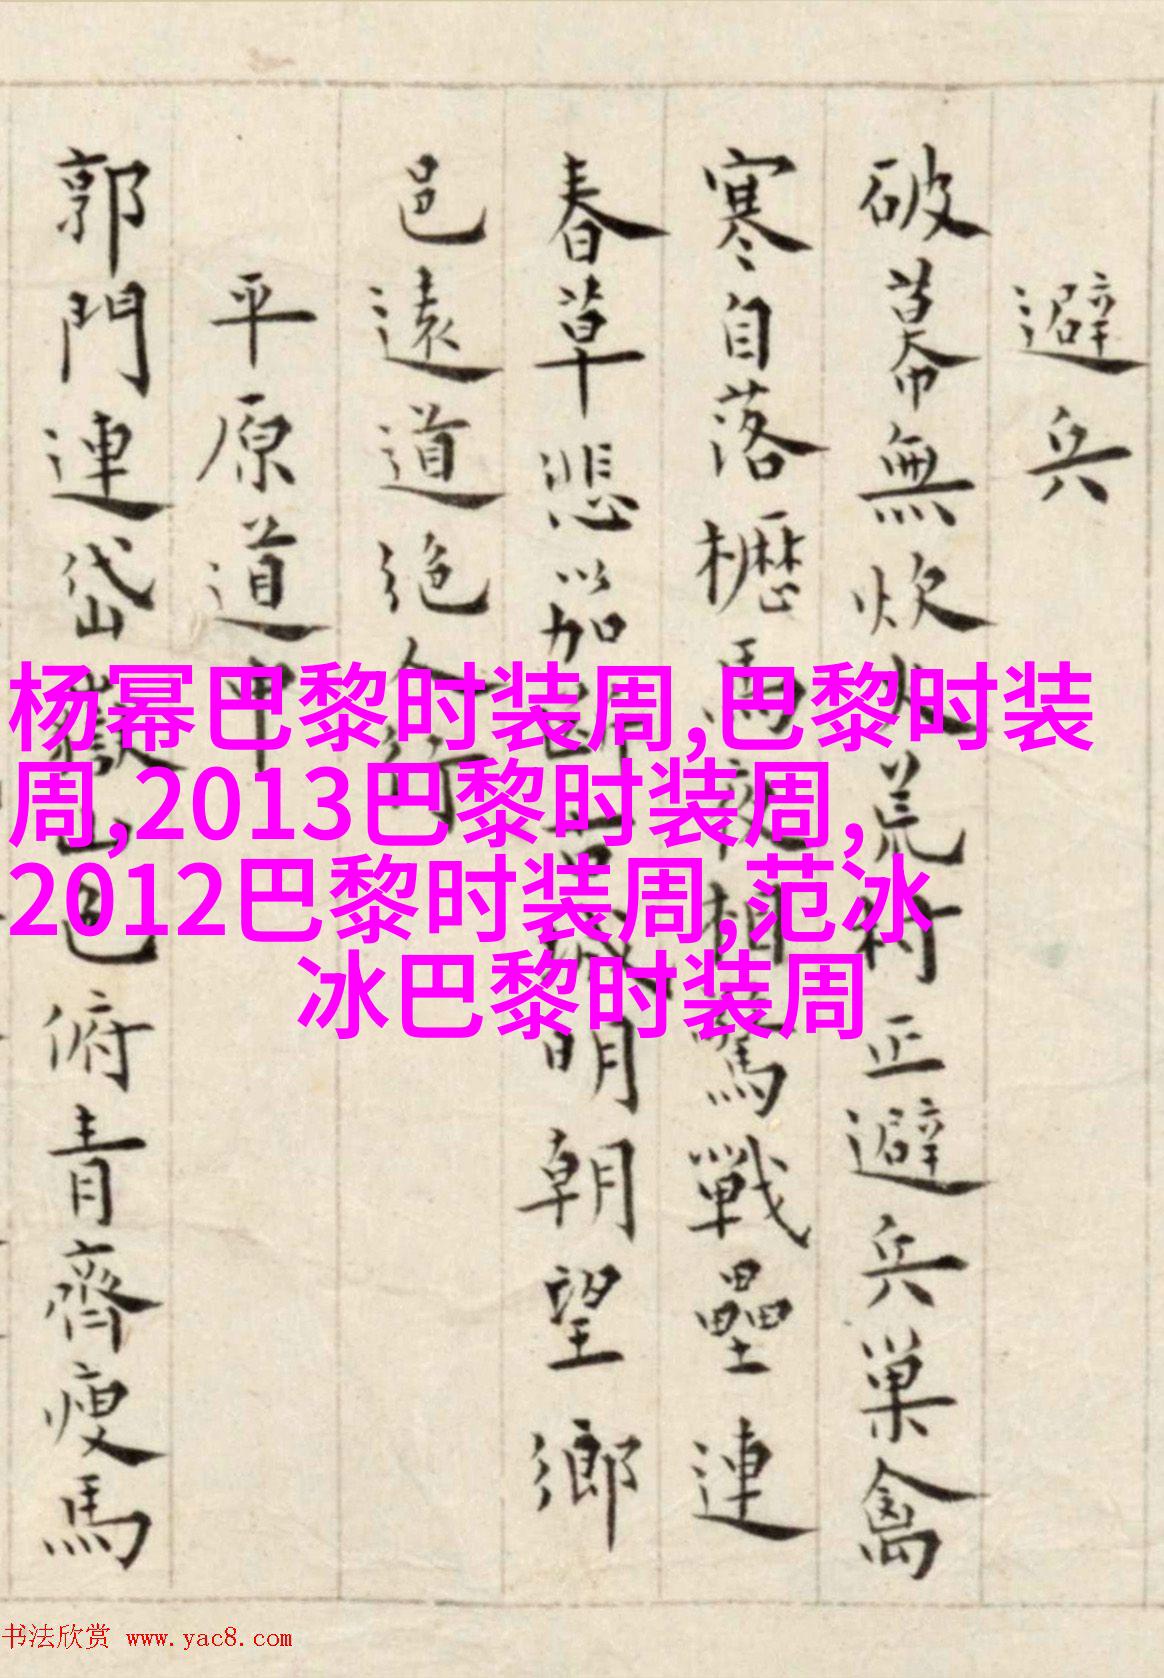 避兵
破幕無炊火荒村正避兵巢禽
寒自落櫪馬夜相驚戰壘連
春草悲笳明朝望鄉
邑遠道絶人行
平原道中
郭門連岱嶽山色俯青齊瘦馬
杨幂巴黎时装周,巴黎时装
周,2013巴黎时装周,
2012巴黎时装周,范冰
冰巴黎时装周
书法欣赏 www.yac8.com